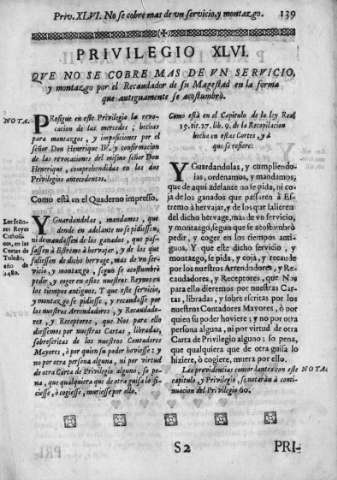 Priv. XLVI. No se cobre mas de vn servicio, y montazgo. 139
PRIVILEGIO XLVI.
QUE NO SE COBRE MAS DE VN SERVICIO,
y montazgo por el Recaudador de su Magestad en la forma
que antiguamente se acostumbró.
NOTA:
PRosigue en este Privilegio la revo-
cacion de las mercedes, hechas
para montazgos, y imposiciones por el
señor Don Henrique IV. y confirmacion
de las revocaciones del mismo señor Don
Henrique, comprehendidas en los dos
Privilegios antecedentes.
Como está en el Quaderno impresso.
Los señores Reyes
Catholicos, en las
Cortes de
Toledo,
año de
1480.
Y Guardandolas, mandamos, que
de en adelante no se pidiessen,
ni demandassen de los ganados, que pas-
sassen à Estremo à hervajar, y de los que
saliessen de dicho hervage, mas de vn ser-
vicio, y montazgo, segun se acostumbró
pedir, y coger en estos nuestros Reynos en
los tiempos antiguos. Y que este servicio,
y montazgo se pidiesse, y recaudasse por
los nuestros Arrendadores, y Recaudado-
res, y Receptores, que Nos para ello
diessemos por nuestras Cartas, libradas,
sobrescritas de los nuestros Contadores
Mayores, ò por quien su poder hoviesse; y
no por otra persona alguna, ni por virtud
de otra Carta de Privilegio alguno, so pe-
na, que qualquiera que de otra guisa lo hi-
ziesse, ò cogiesse, muriesse por ello.
Como está en el Capitulo de la ley Real
19. tit. 27. lib. 9. de la Recopilacion
hecha en estas Cortes, y à
que se refiere:
Y Guardandolas, y cumpliendo-
las, ordenamos, y mandamos,
que de aqui adelante no se pida, ni co-
ja de los ganados que passaren à Es-
tremo à hervajar, y de los que salieren
del dicho hervage, mas de vn servicio,
y montazgo, segun que se acostumbró
pedir, y coger en los tiempos anti-
guos. Y que este dicho servicio, y
montazgo, se pida, y coja, y recau-
de por los nuestros Arrendadores, y Re-
caudadores, y Receptores, que Nos
para ello diéremos por nuestras Car-
tas, libradas, y sobre escritas por los
nuestros Contadores Mayores, ò por
quien su poder hoviere; y no por otra
persona alguna, ni por virtud de otra
Carta de Privilegio alguno; so pena,
que qualquiera que de otra guisa lo
hiziere, ò cogiere, muera por ello.
Las providencias concordantes con este
capitulo, y Privilegio, se notarán à conti-
nuacion del Privilegio 60.
NOTA:
S2
PRI-